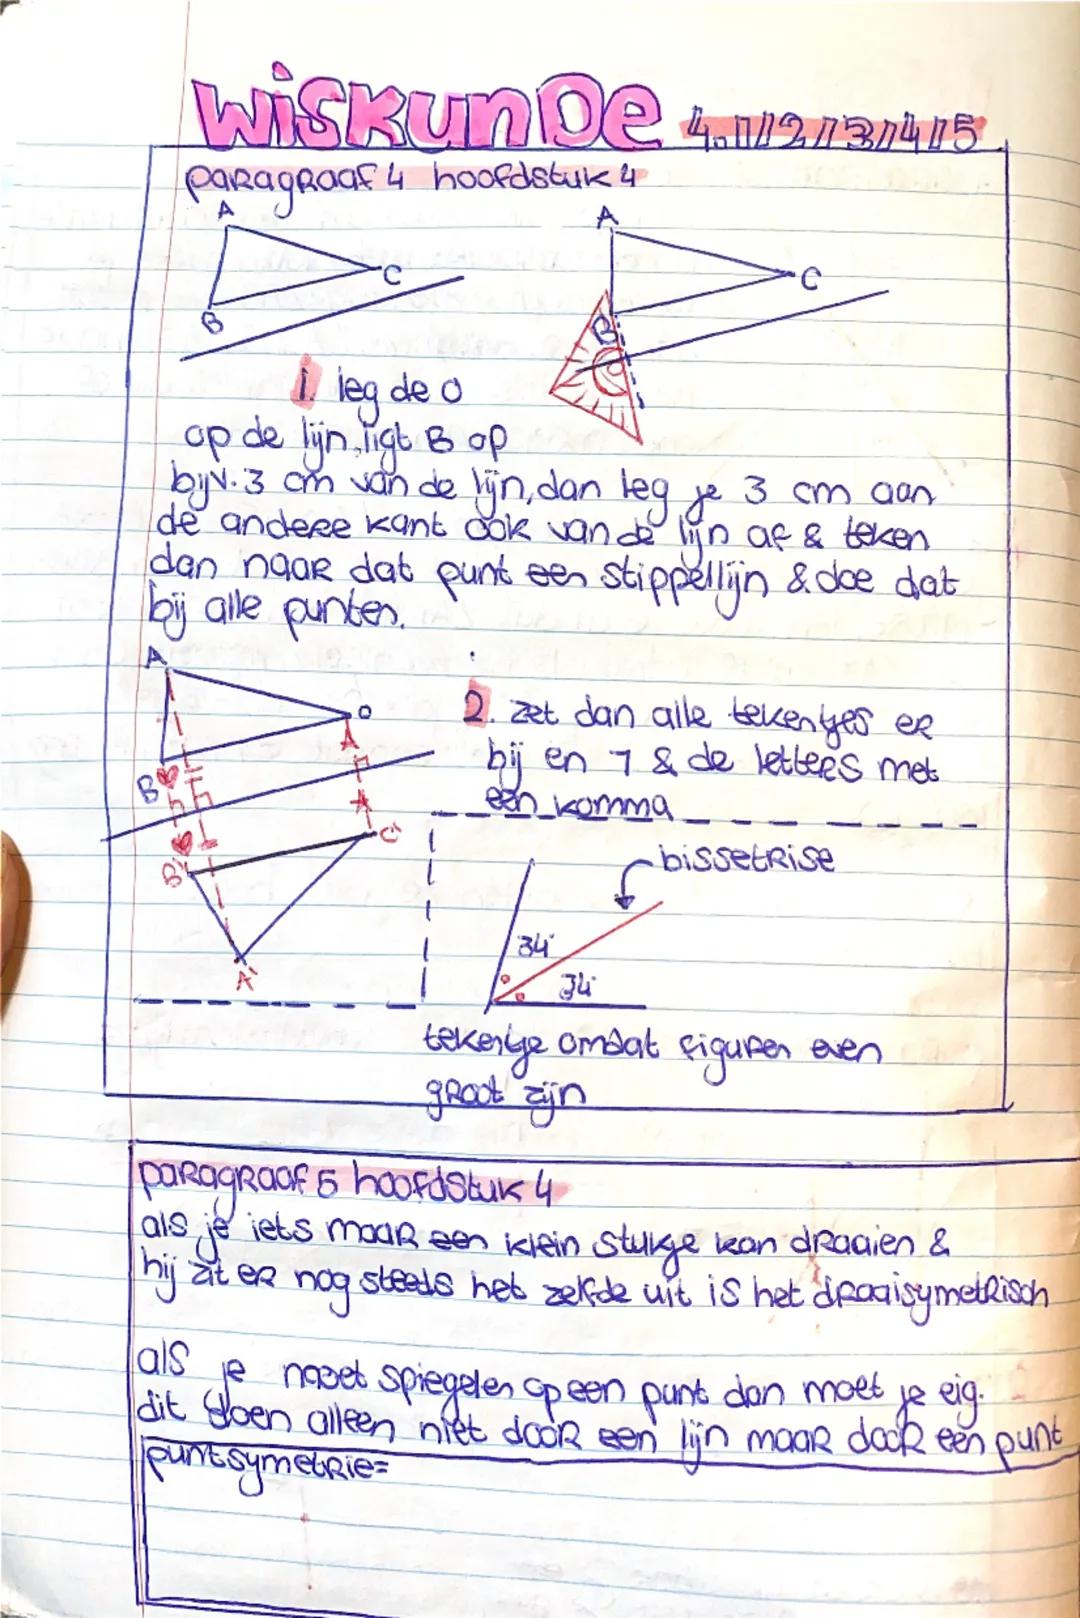 wiskunde 4.1/2/3/4/5
paragraaf 4 hoofdstuk 4
A
C
B
A
C
B
1. leg de 0
op de lijn, ligt B op
bijv. 3 cm van de lijn, dan leg je 3 cm aan
de andere kant ook van de lijn af & teken
dan naar dat punt een stippellijn & doe dat
bij alle punten.
A
B
B'
C'
A'
2. zet dan alle tekentjes er
bij en ┐ & de letters met
een komma
bissetrise
34°
34°
tekentje omdat figuren even
groot zijn
paragraaf 5 hoofdstuk 4
als je iets maar een klein stukje kan draaien &
hij zit er nog steeds het zelfde uit is het draaisymetrisch
als je moet spiegelen op een punt dan moet je eig.
dit doen alleen niet door een lijn maar door een punt
puntsymetrie=